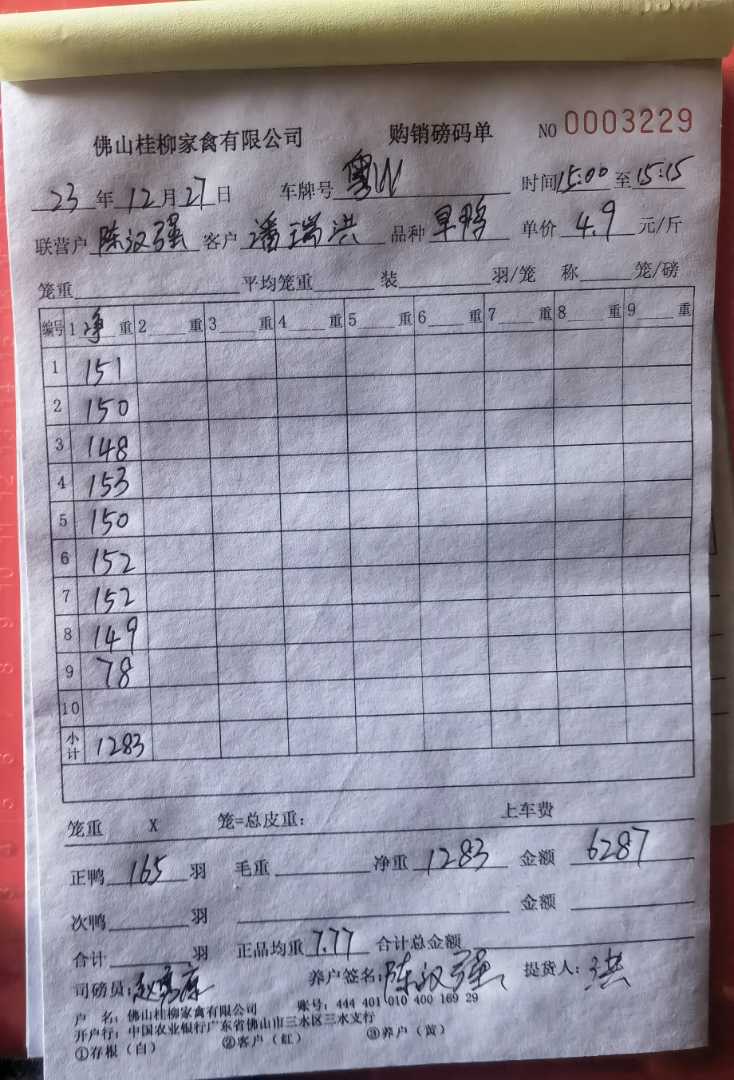 佛山桂柳家禽有限公司 购销磅码单 NO 0003229
23 年 12 月 27 日 车牌号 粤W 时间 15:00 至 15:15
联营户 陈汉强 客户 潘瑞洪 品种 旱鸭 单价 4.9 元/斤
笼重 平均笼重 装 羽/笼 称 笼/磅
编号 1 净 重 2 重 3 重 4 重 5 重 6 重 7 重 8 重 9 重
1 151
2 150
3 148
4 153
5 150
6 152
7 152
8 149
9 78
10
小计 1283
笼重 X 笼=总皮重: 上车费
正鸭 165 羽 毛重 净重 1283 金额 6287
次鸭 羽 金额
合计 羽 正品均重 7.77 合计总金额
司磅员: 养户签名: 陈汉强 提货人: 洪
户 名: 佛山桂柳家禽有限公司 账号: 444 401 010 400 169 29
开户行: 中国农业银行广东省佛山市三水区三水支行
①存根(白) ②客户(红) ③养户(黄)